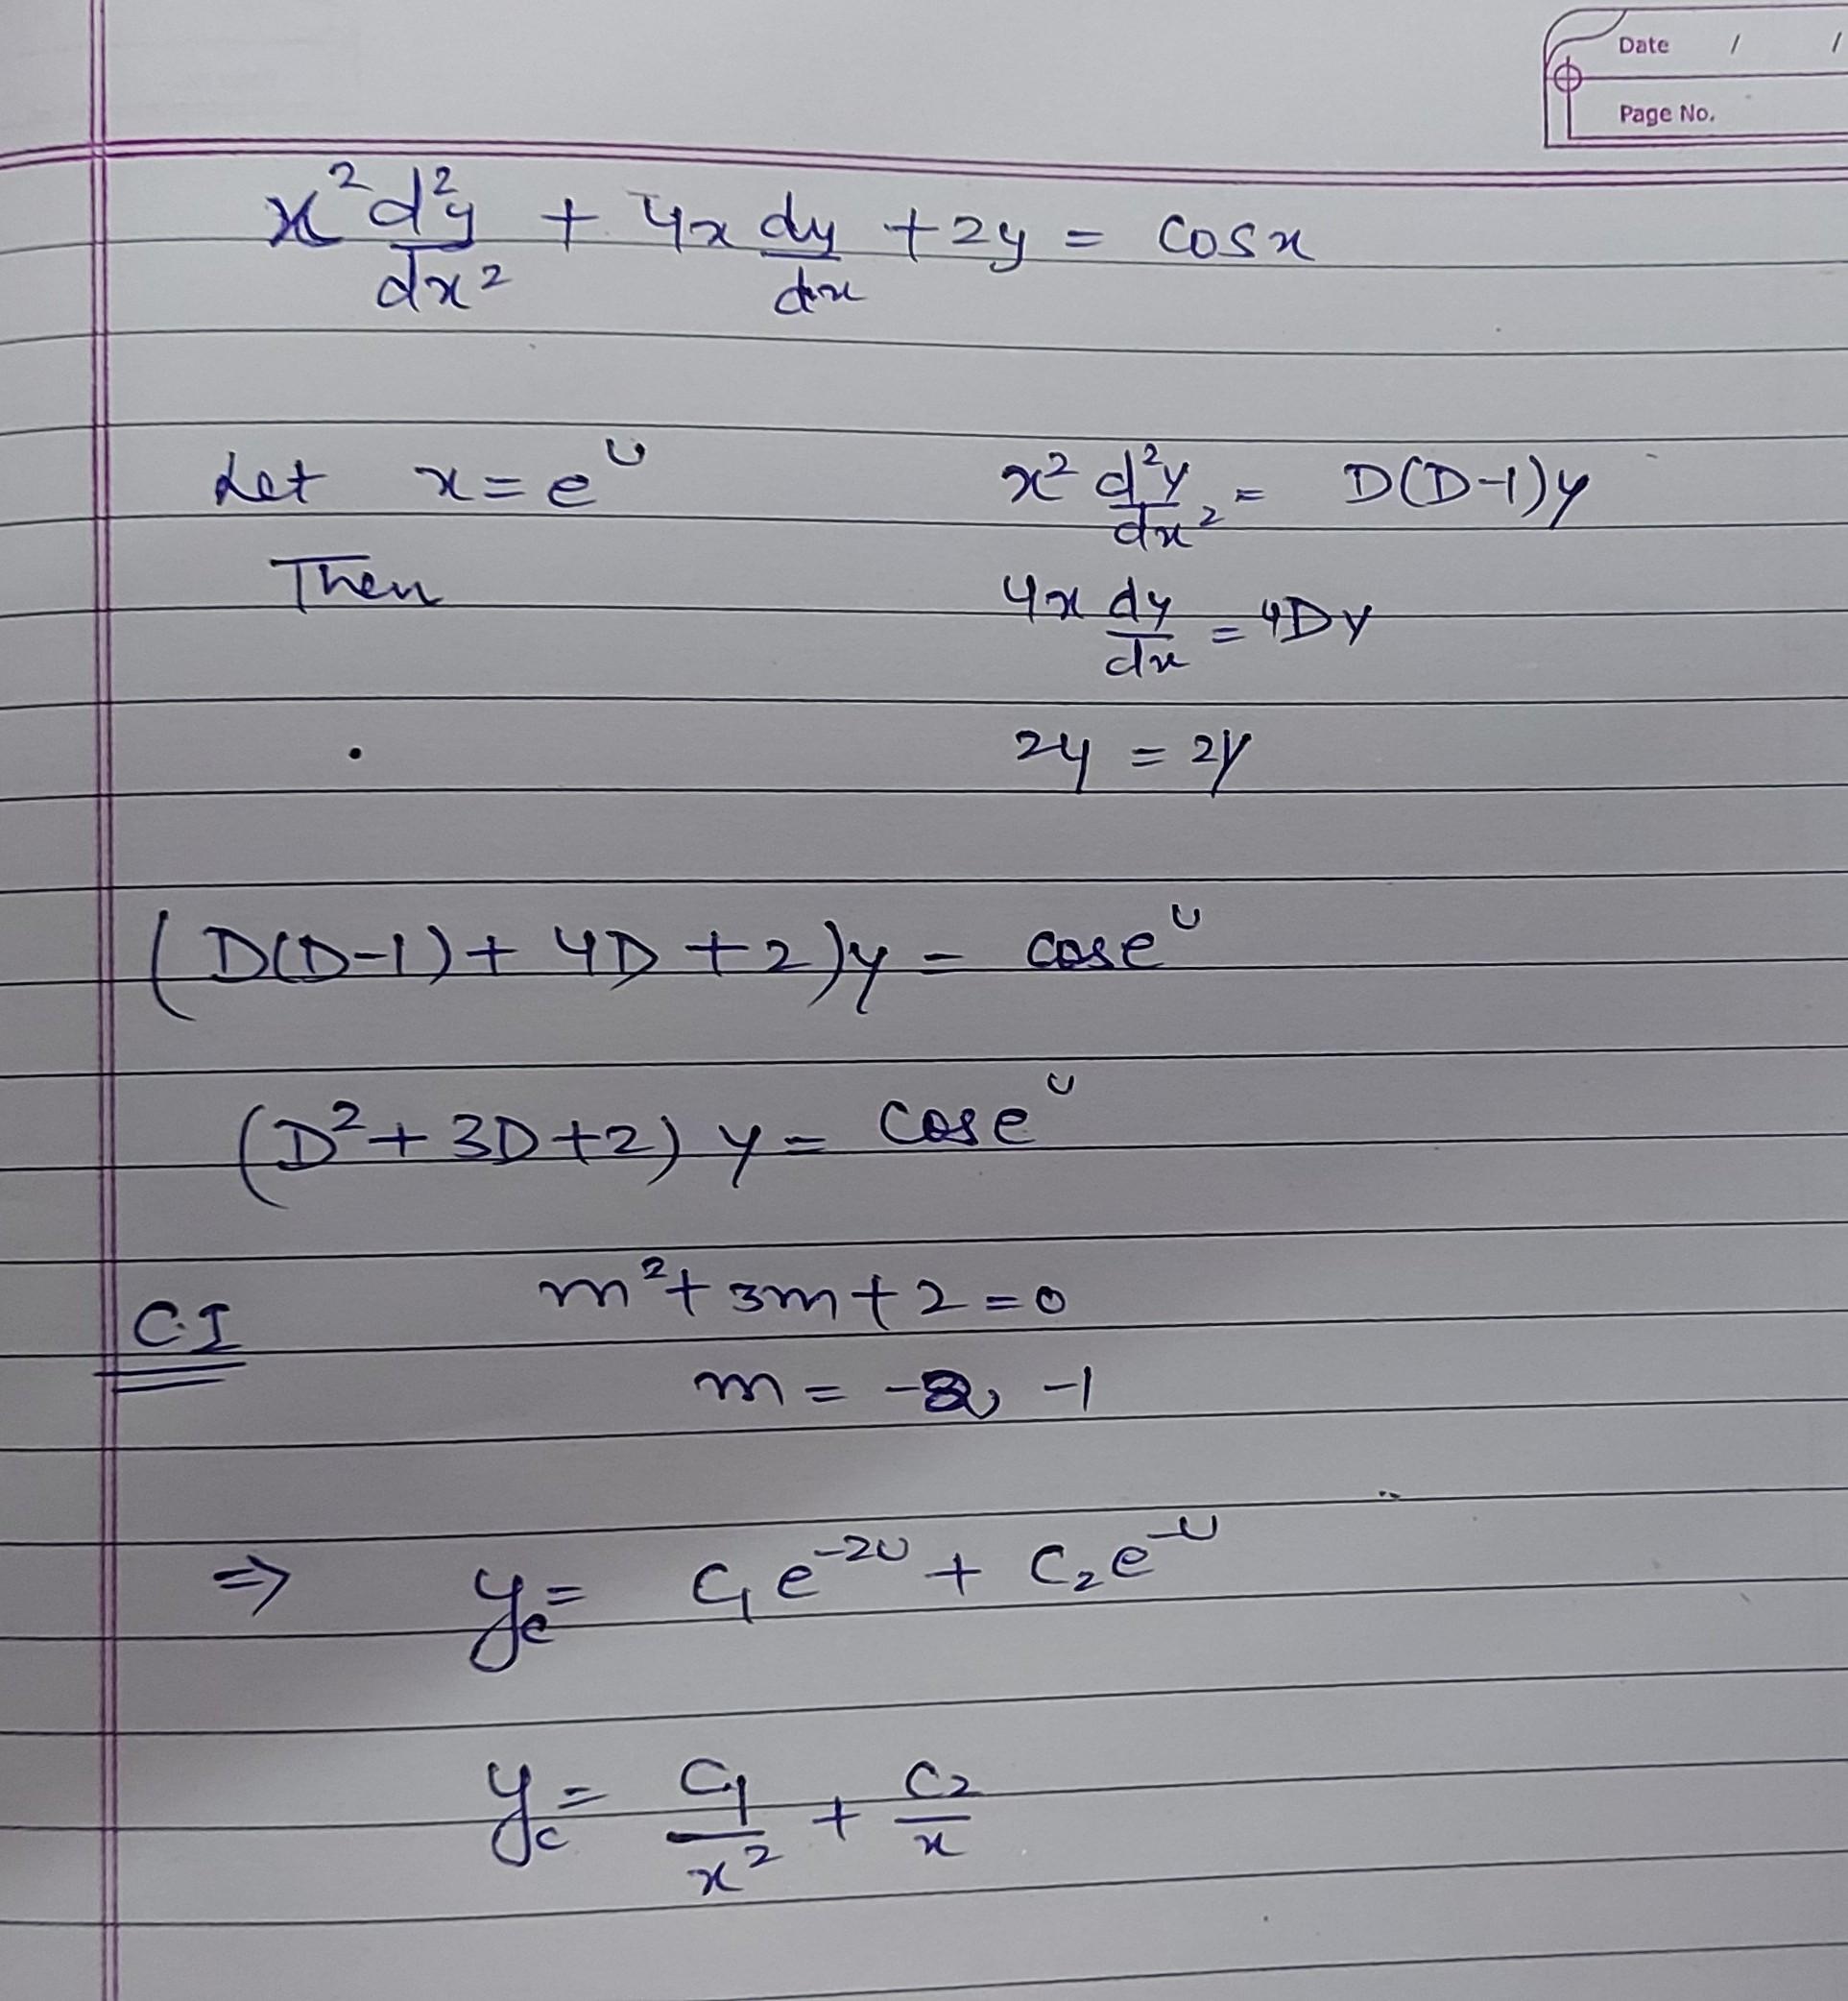 Date / /
Page No.
x² d²y/dx² + 4x dy/dx + 2y = cosx
Let x = e^u x² d²y/dx² = D(D-1)y
Then 4x dy/dx = 4Dy
2y = 2y
(D(D-1) + 4D + 2)y = cose^u
(D² + 3D + 2) y = cose^u
C.I m² + 3m + 2 = 0
m = -2, -1
⇒ y_c = C₁e^-2u + C₂e^-u
y_c = C₁/x² + C₂/x